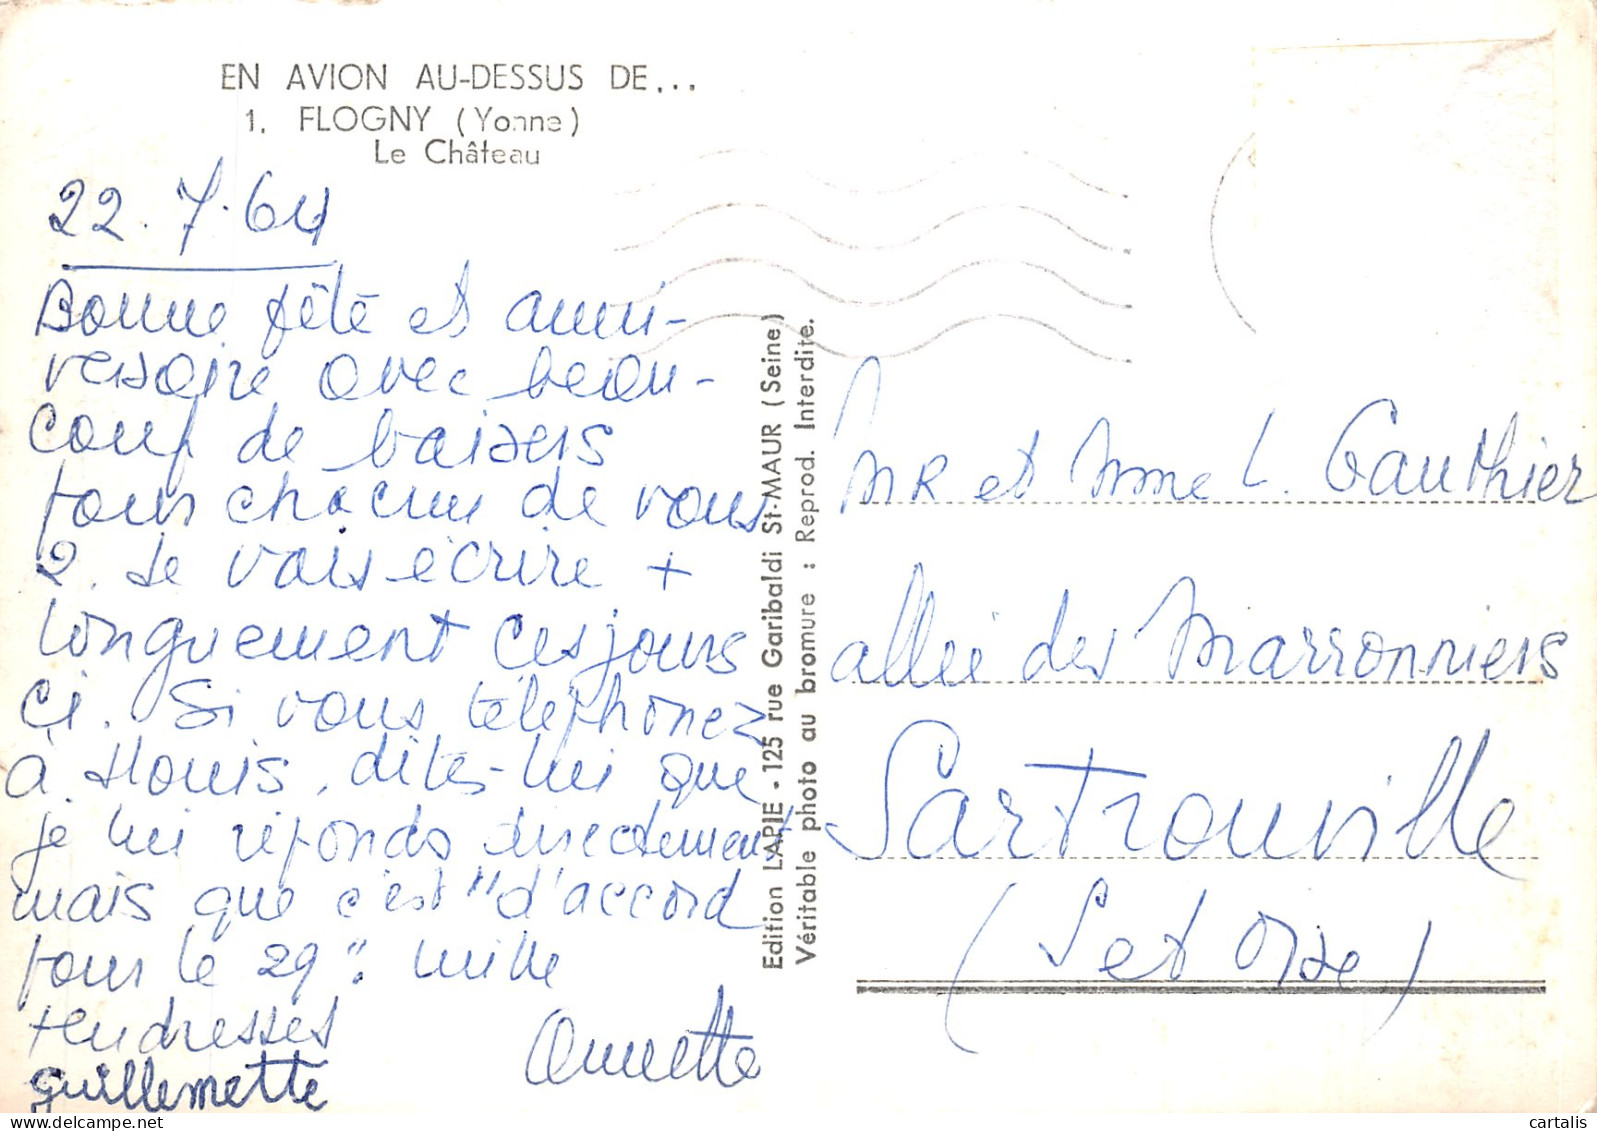 EN AVION AU-DESSUS DE...
1. FLOGNY (Yonne)
Le Château
22.7.64
Bonne fête et anni-
versaire avec beau-
coup de baisers
pour chacun de vous
2. Je vais écrire +
longuement ces jours
ci. Si vous téléphonez
à Louis, dites-lui que
je lui réponds directement
mais que c'est "d'accord
pour le 29". Mille
tendresses
Annette
guillemette
Edition LAPIE - 125 rue Garibaldi St-MAUR (Seine)
Véritable photo au bromure : Reprod. Interdite.
MR et Mme L. Gauthier
allée des Marronniers
Sartrouville
(S et Oise)
cartalis